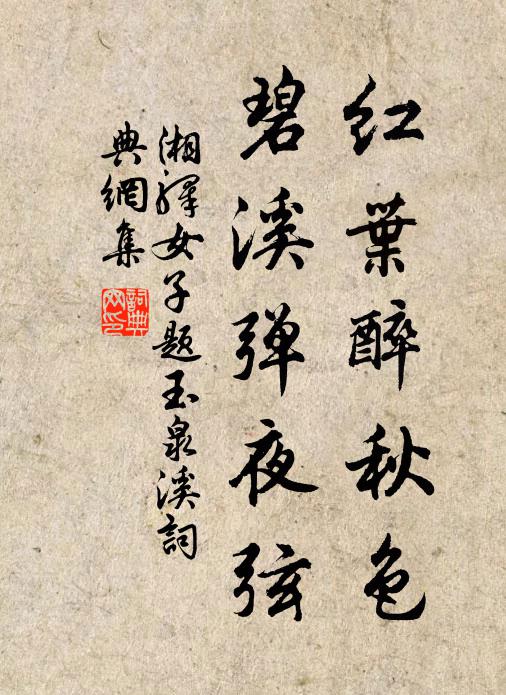 红葉醉秋色
碧溪弹夜弦
湘驿女子題玉泉溪詞
典網集
詞典
网印